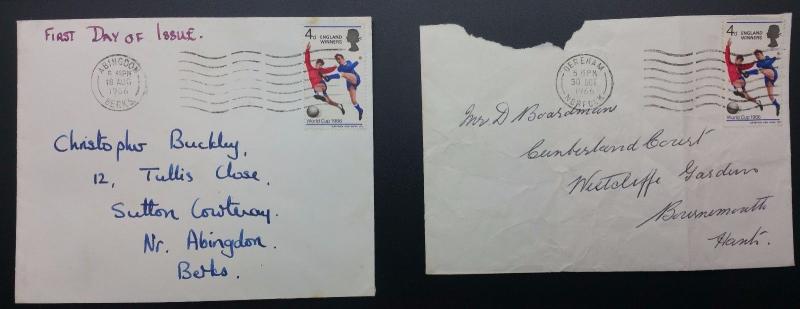 FIRST DAY OF ISSUE.
ABINGDON
6 45PM
18 AUG
1966
BERKS.
4d ENGLAND
WINNERS
World Cup 1966
Christopher Buckley,
12, Tullis Close,
Sutton Courtenay.
Nr. Abingdon.
Berks.
DEREHAM
PM
30
1966
NORFOLK
4d ENGLAND
WINNERS
World Cup 1966
D Boardman
Cumberland Court
Westcliffe Gardens
Bournemouth
Hants.